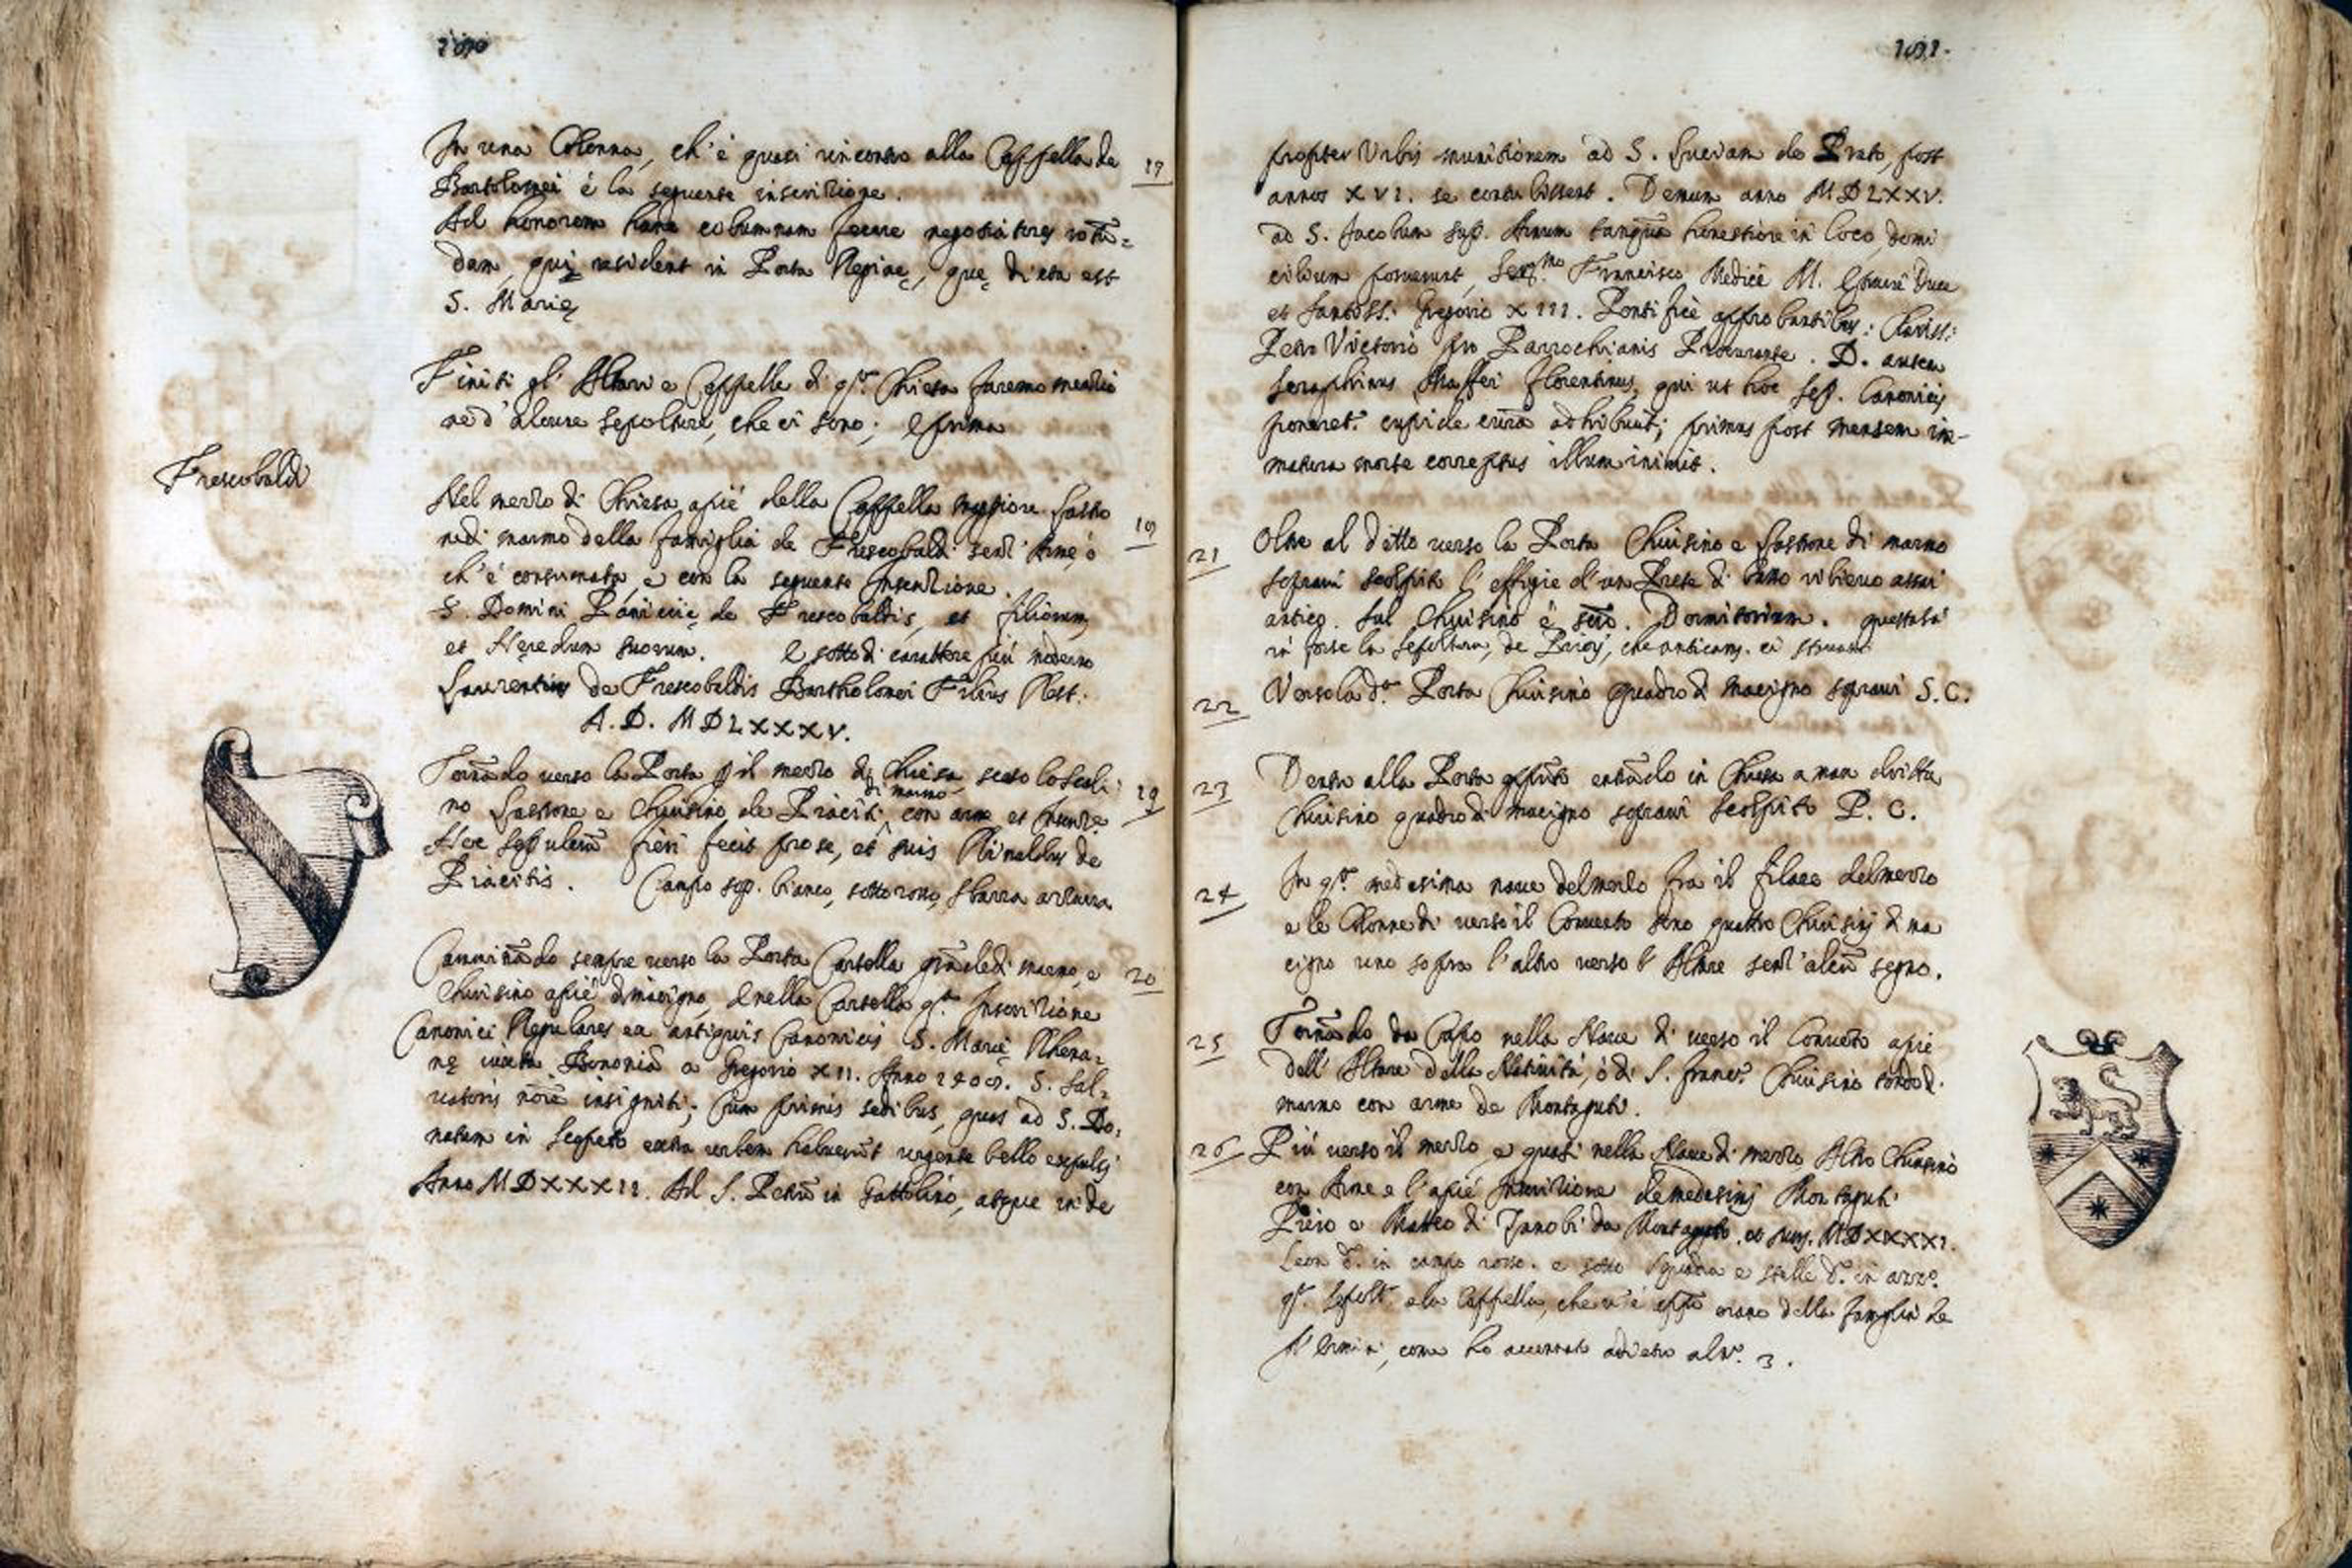 In una Colonna, ch'è quasi rincontro alla Cappella de 17
Bartolomei è la seguente inscrizione.
Ad honorem hanc columnam fecere negotiatores
dam, qui resident in Porta Reginę, quę dicta est
S. Marię
Finiti gl'Altari e Cappelle di q.sta Chiesa faremo menzio
ne d'alcune sepolture, che ci sono; e prima
Frescobaldi
Nel mezzo di Chiesa apiè della Cappella maggiore lastro
ne di marmo della famiglia de Frescobaldi senz'Arme, ò
ch'è consumata, e con la seguente Inscrizione.
S. Domini de Frescobaldis, et filiorum,
et Heredum suorum. E sotto di carattere più moderno
Laurentius de Frescobaldis Bartholomei Filius Rest:
A. D. MDLXXXV.
Tornādo verso la Porta p il mezzo di Chiesa sceso lo scali- 19
no lastrone e Chiusino di marmo de Piaciti con arme et
Hoc sepulcrū fieri fecit pro se, et suis Rinaldus de
Piacitis. Campo sop. bianco, sotto rosso, sbarra azzurra
Camminādo sempre verso la Porta Cartella grāde di marmo, e 20
Chiusino apiè di macigno, e nella Cartella q.sta Inscrizione
Canonici Regulares ex antiquis Canonicis S. Marię Rhena-
nę iuxta Bononiā a Gregorio XII. Anno S. Sal-
vatoris noīe insigniti; Cum primis sedibus, quas ad S. Do-
natum in Scopeto extra urbem habuerūt urgente bello expulsi
Anno MDXXXII. Ad S. Petrū in Gattolino, atque inde
propter Urbis munitionem ad S. Luciam de Prato, post
annos XVI. se contulissent. Demum anno MDLXXV.
ad S. Jacobum sup. Arnum tanquā honestiore in loco, domi
cilium posuerunt, Ser.mo Francisco Medice M. Etrurię Duce
et Sanctiss: Gregorio XIII. Pontifice approbantibus: Clariss:
Petro Victorio pro Parrochianis Procurante. D. autem
Seraphinus Maffei Florentinus, qui ut hoc sep. Canonicis
poneret. cupide curā adhibuit; primus post mensem im-
matura morte correptus illum inivit.
21 Oltre al detto verso la Porta Chiusino e lastrone di marmo
sopravi scolpito l'effigie d'un Prete di basso rilievo assai
antico. Sul Chiusino è Dormitorium. questa sa
rà forse la sepoltura, de Priori, che anticam. ci stavano
22 Verso la d.a Porta Chiusino quadro di macigno sopravi S. C.
23 Dentro alla Porta entrādo in Chiesa a man dritta
Chiusino quadro di macigno sopravi scolpito P. C.
24 In q.sta medesima nave del mezzo fra il filare del mezzo
e le Colonne di verso il Convento sono quattro Chiusini di ma
cigno uno sopra l'altro verso l'Altare senz'alcū segno.
25 Tornādo da Capo nella Nave di verso il Convēto apiè
dell'Altare della Natività, ò di S. Franc.o Chiusino tondo di
marmo con arme de Montaguti.
26 Più verso il mezzo e quasi nella Nave di mezzo Altro Chiusino
con Arme e l'apiè Inscrizione de medesimi Montaguti
Piero e Matteo di Zanobi da Montaguto et suis. MDXXXXI.
Leon d. in campo rosso. e sotto squadra e stelle d. in azz.o
q.sta sepolt.a e la Cappella, che v'è erano della famiglia de
come ho accennato adietro al n.o 3.